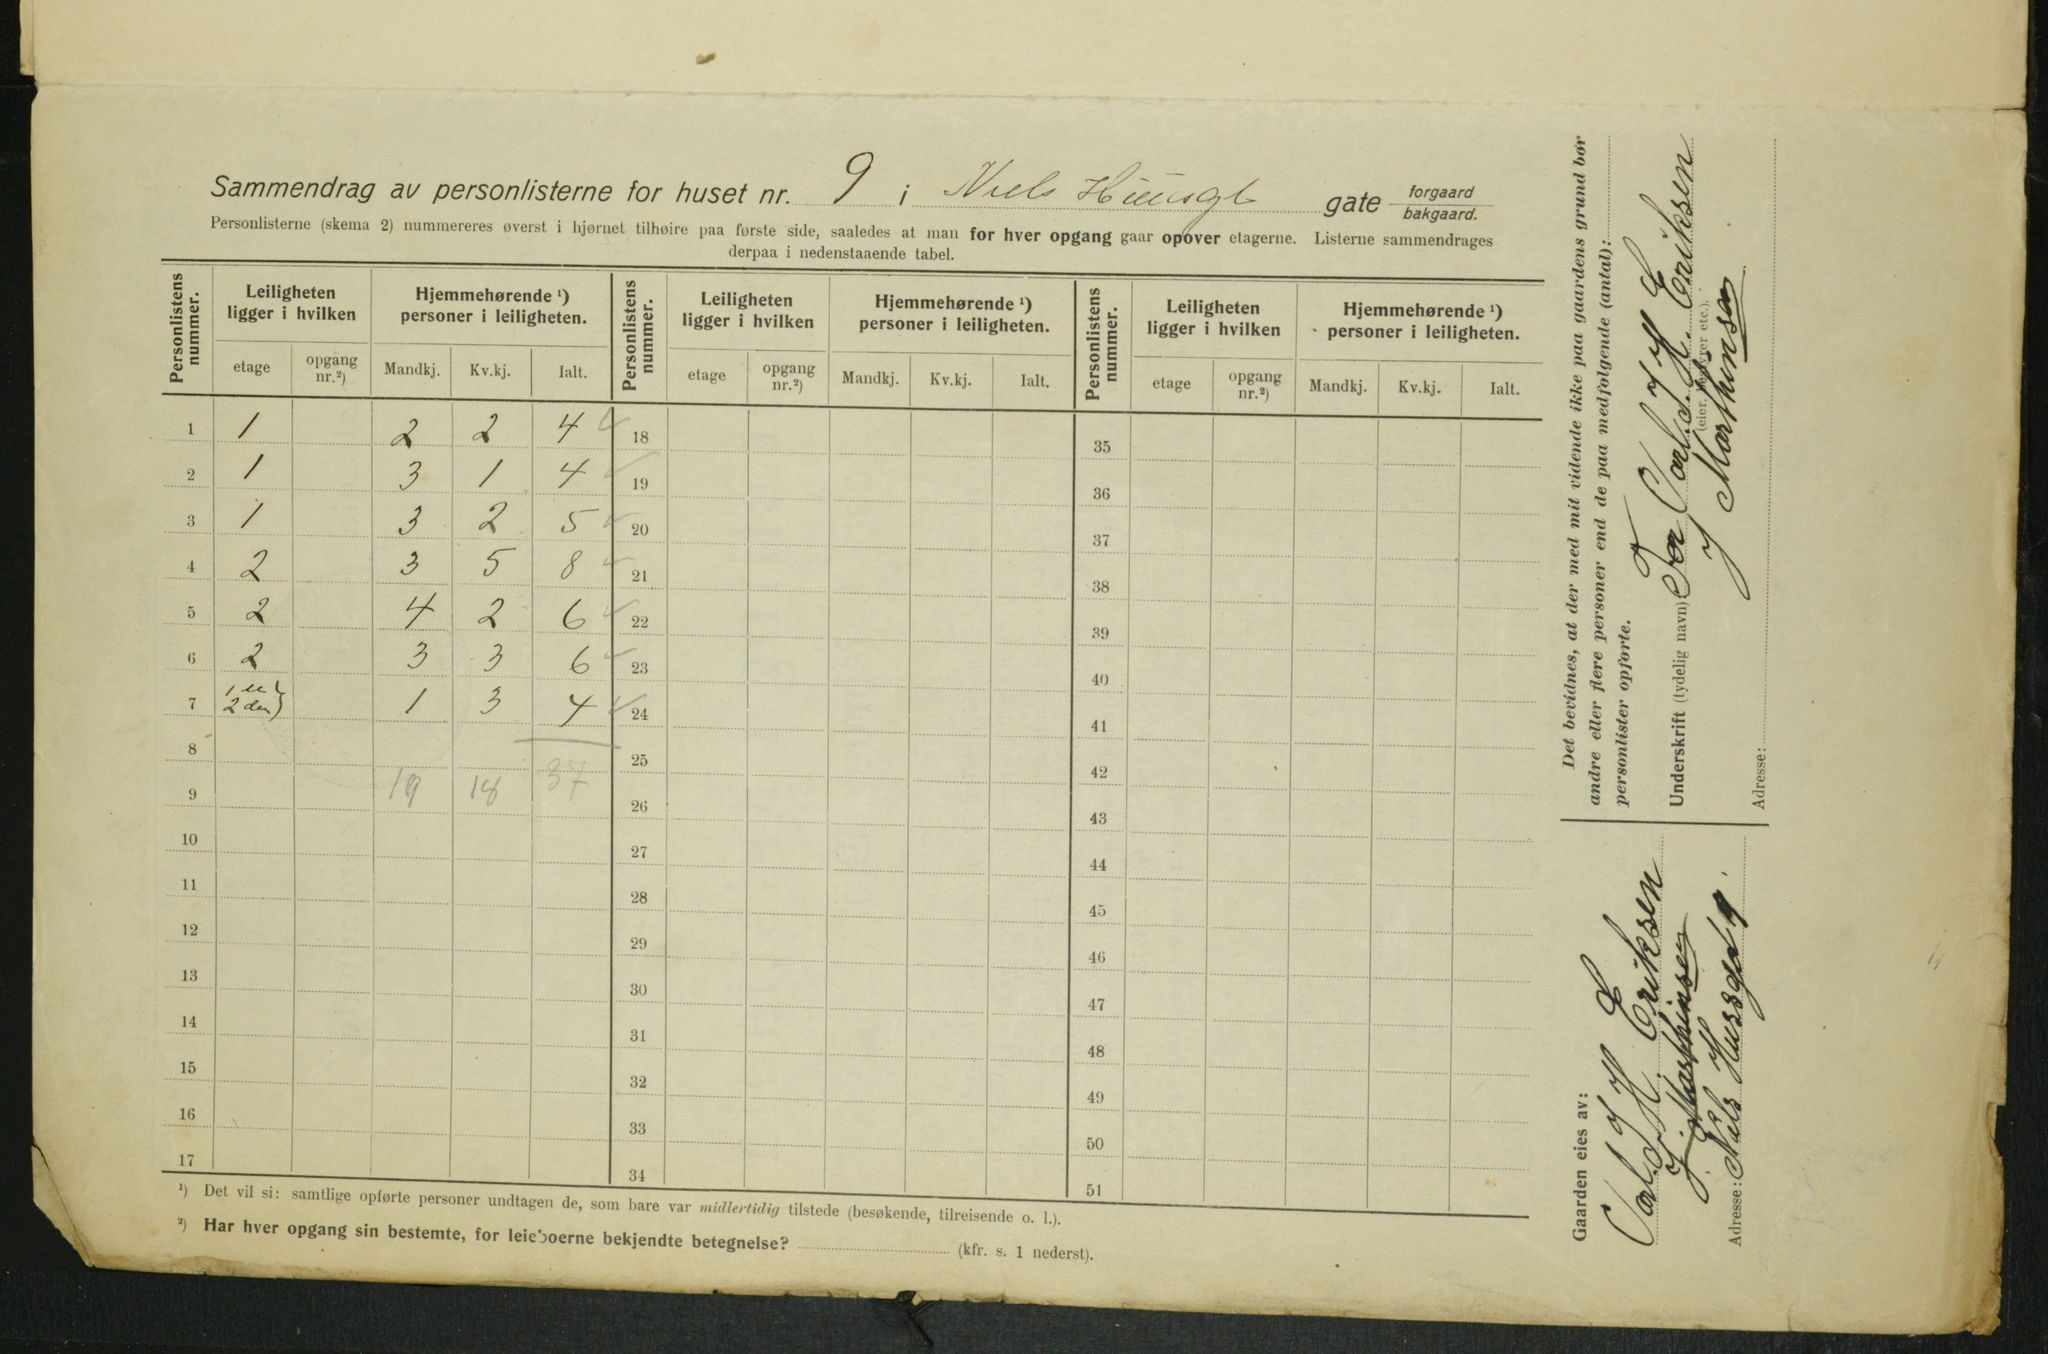 Sammendrag av personlisterne for huset nr. 9 i Niels Huusgt gate forgaard bakgaard.
Personlisterne (skema 2) nummereres øverst i hjørnet tilhøire paa første side, saaledes at man for hver opgang gaar opover etagerne. Listerne sammendrages
derpaa i nedenstaaende tabel.
Personlistens nummer. Leiligheten ligger i hvilken Hjemmehørende ¹) personer i leiligheten. Personlistens nummer. Leiligheten ligger i hvilken Hjemmehørende ¹) personer i leiligheten. Personlistens nummer. Leiligheten ligger i hvilken Hjemmehørende ¹) personer i leiligheten.
etage opgang nr.²) Mandkj. Kv.kj. Ialt. etage opgang nr.²) Mandkj. Kv.kj. Ialt. etage opgang nr.²) Mandkj. Kv.kj. Ialt.
1 1 2 2 4 18 35
2 1 3 1 4 19 36
3 1 3 2 5 20 37
4 2 3 5 8 21 38
5 2 4 2 6 22 39
6 2 3 3 6 23 40
7 1 2den 1 3 4 24 41
8 25 42
9 19 18 37 26 43
10 27 44
11 28 45
12 29 46
13 30 47
14 31 48
15 32 49
16 33 50
17 34 51
¹) Det vil si: samtlige opførte personer undtagen de, som bare var midlertidig tilstede (besøkende, tilreisende o. l.).
²) Har hver opgang sin bestemte, for leieboerne bekjendte betegnelse? (kfr. s. 1 nederst).
Det bevidnes, at der med mit vidende ikke paa gaardens grund bor
andre eller flere personer end de paa medfølgende (antal):
personlister opførte.
Underskrift (tydelig navn) For Carl og H E Eriksen
(eier, bestyrer etc.).
J Marthinsen
Adresse:
Gaarden eies av:
Carl og H E Eriksen
J Marthinsen
Adresse: Niels Hussgd 9.